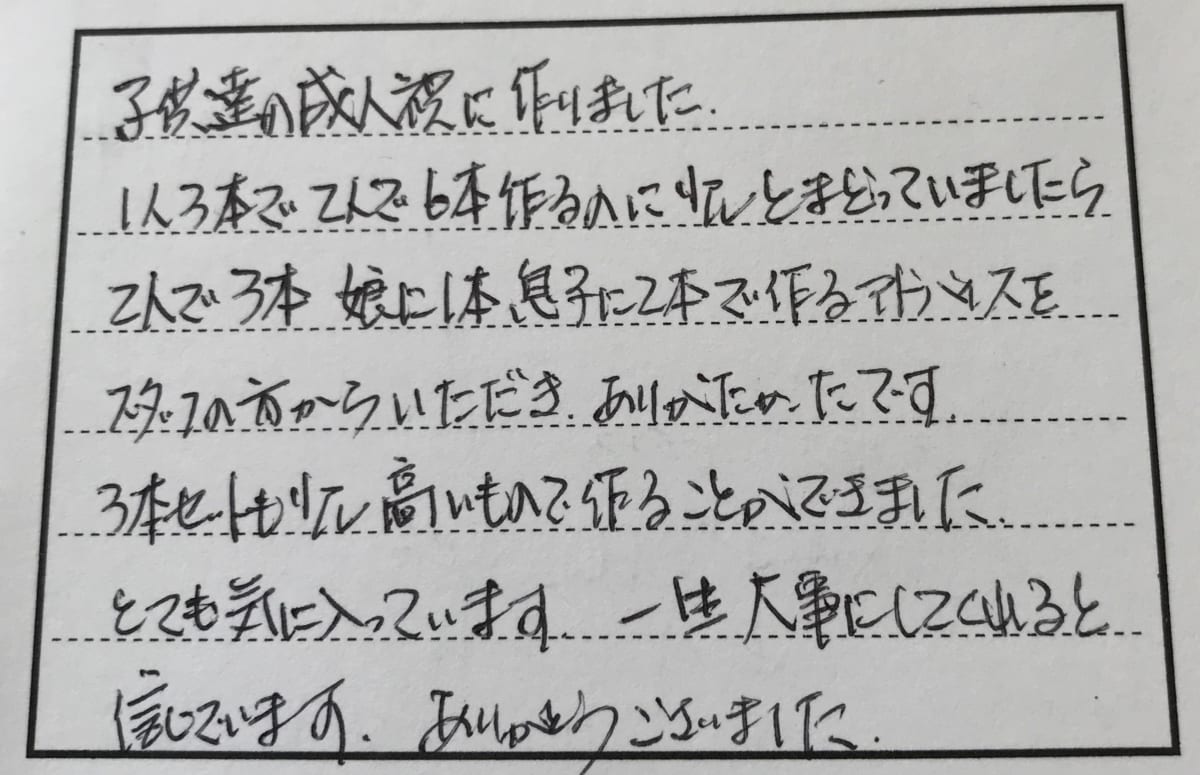 子供達の成人祝に作りました.
1人3本で2人で6本作るのに少しとまどっていましたら
2人で3本 娘に1本、息子に2本で作るアドバイスを
スタッフの方からいただき、ありがたかったです.
3本セットも少し高いもので作ることができました.
とても気に入っています. 一生大事にしてくれると
信じています. ありがとうございました.